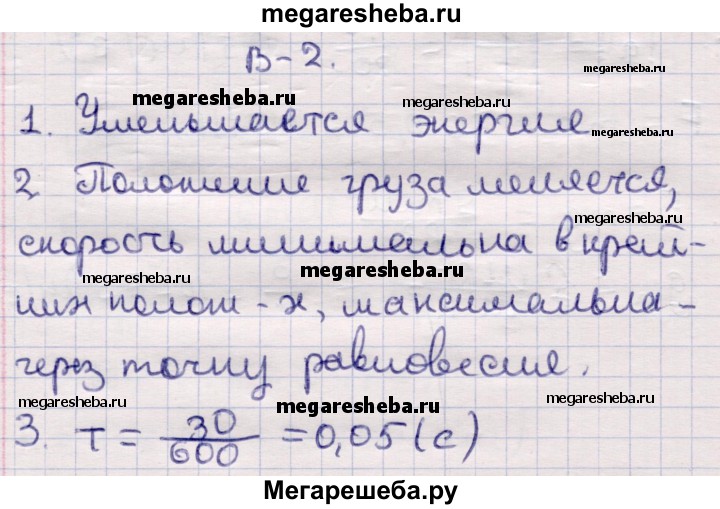 megaresheba.ru
В-2.
megaresheba.ru
megaresheba.ru
megaresheba.ru
1. Уменьшается энергия
megaresheba.ru
2 Положение груза меняется,
megaresheba.ru
скорость минимальна в край-
megaresheba.ru
megaresheba.ru
них полож-х, максимальна-
через точку равновесия.
megaresheba.ru
megaresheba.ru
megaresheba.ru
3. T = 30/600 = 0,05 (с)
Мегарешеба.ру